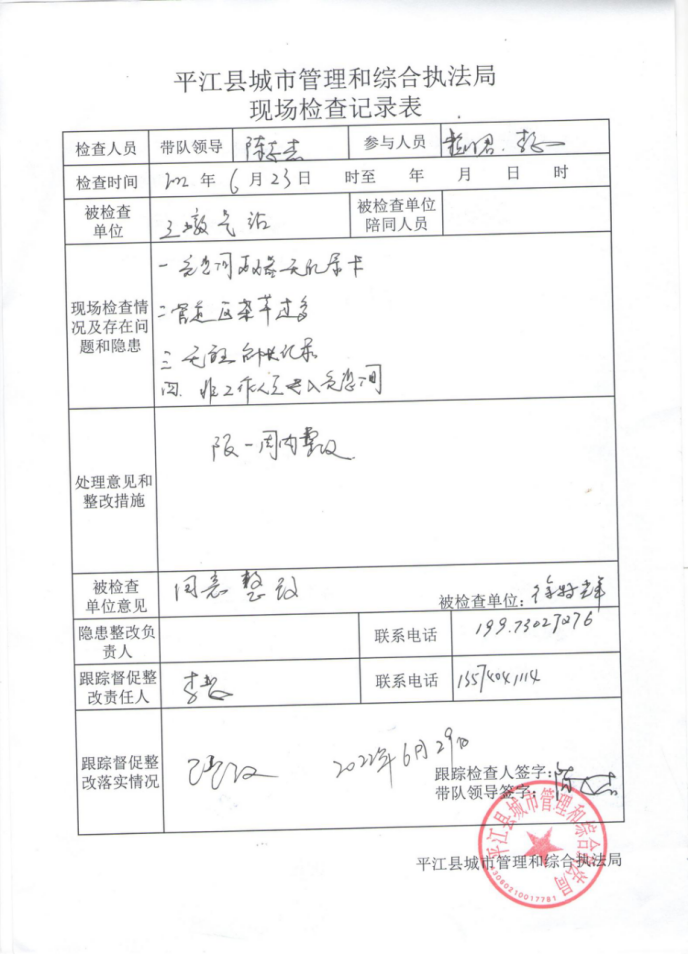 平江县城市管理和综合执法局
现场检查记录表
检查人员 带队领导 陈 参与人员
检查时间 2022 年 6 月 23 日 时至 年 月 日 时
被检查单位 气站 被检查单位陪同人员
现场检查情况及存在问题和隐患
一 充瓶间 无记录卡
二 管道区杂草过多
三 无 记录
四. 非工作人员进入充瓶间
处理意见和整改措施
限一周内整改
被检查单位意见 同意整改
被检查单位:
隐患整改负责人 联系电话 199.73027276
跟踪督促整改责任人 李 联系电话 13574041114
跟踪督促整改落实情况 已整改 2022年6月29日
跟踪检查人签字:
带队领导签字: 陈
平江县城市管理和综合执法局
平江县城市管理和综合执法局
43060210017781